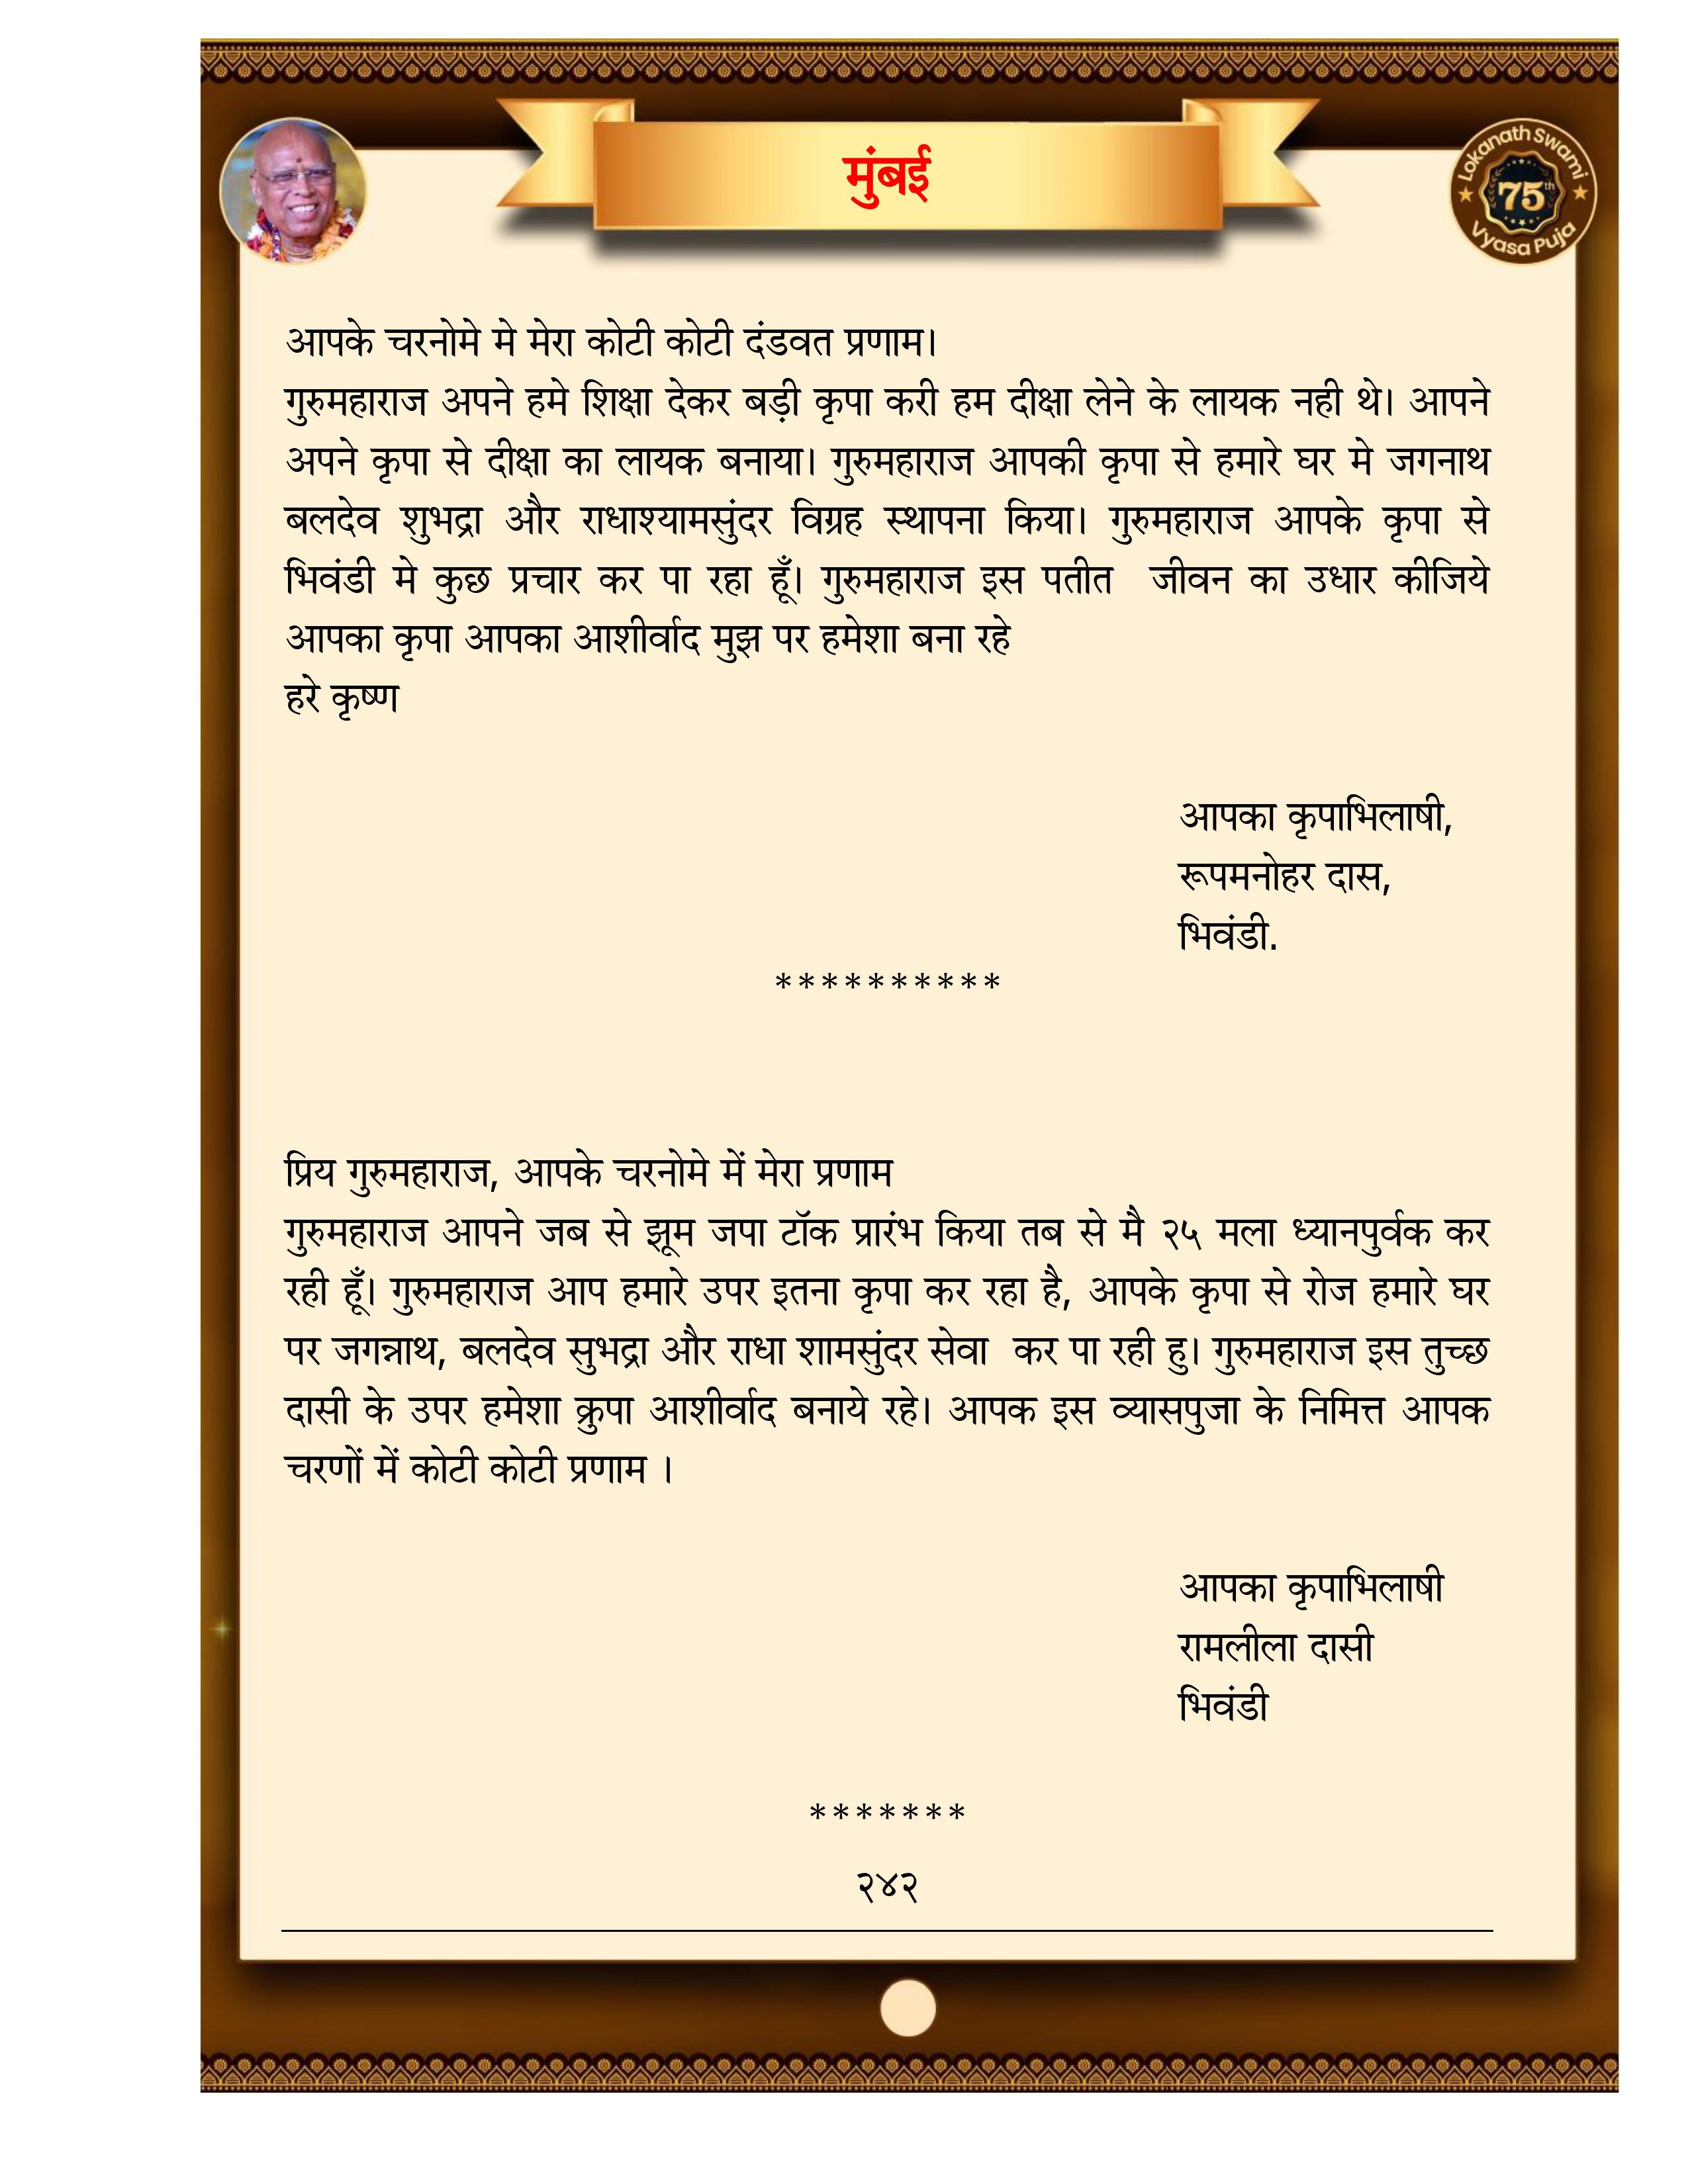 मुंबई
Lokanath Swami
75th
Vyasa Puja
आपके चरनोमे मे मेरा कोटी कोटी दंडवत प्रणाम।
गुरुमहाराज अपने हमे शिक्षा देकर बड़ी कृपा करी हम दीक्षा लेने के लायक नही थे। आपने
अपने कृपा से दीक्षा का लायक बनाया। गुरुमहाराज आपकी कृपा से हमारे घर मे जगनाथ
बलदेव शुभद्रा और राधाश्यामसुंदर विग्रह स्थापना किया। गुरुमहाराज आपके कृपा से
भिवंडी मे कुछ प्रचार कर पा रहा हूँ। गुरुमहाराज इस पतीत जीवन का उधार कीजिये
आपका कृपा आपका आशीर्वाद मुझ पर हमेशा बना रहे
हरे कृष्ण
आपका कृपाभिलाषी,
रूपमनोहर दास,
भिवंडी.
**********
प्रिय गुरुमहाराज, आपके चरनोमे में मेरा प्रणाम
गुरुमहाराज आपने जब से झूम जपा टॉक प्रारंभ किया तब से मै २५ मला ध्यानपुर्वक कर
रही हूँ। गुरुमहाराज आप हमारे उपर इतना कृपा कर रहा है, आपके कृपा से रोज हमारे घर
पर जगन्नाथ, बलदेव सुभद्रा और राधा शामसुंदर सेवा कर पा रही हु। गुरुमहाराज इस तुच्छ
दासी के उपर हमेशा क्रुपा आशीर्वाद बनाये रहे। आपक इस व्यासपुजा के निमित्त आपक
चरणों में कोटी कोटी प्रणाम ।
आपका कृपाभिलाषी
रामलीला दासी
भिवंडी
*******
२४२